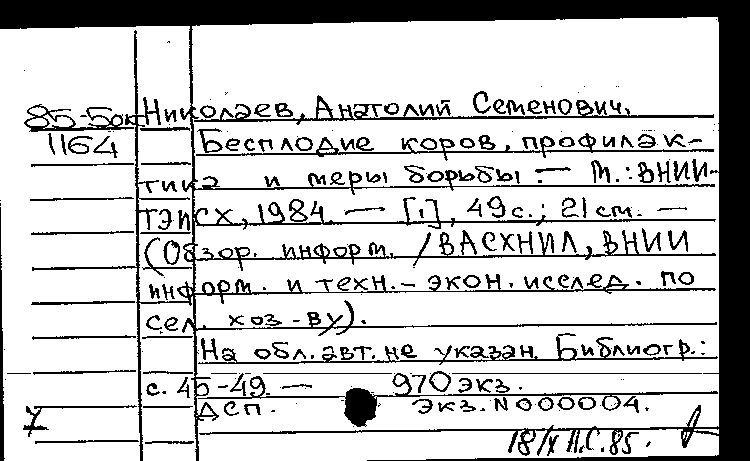 85-5ок Николаев, Анатолий Семенович.
1164 Бесплодие коров, профилак-
тика и меры борьбы. — М.: ВНИИ-
ТЭИСХ, 1984. — [1], 49 с.; 21 см. —
(Обзор. информ. / ВАСХНИЛ, ВНИИ
информ. и техн.-экон. исслед. по
сел. хоз-ву).
На обл. авт. не указан. Библиогр.:
с. 45-49. — 970 экз.
7 ДСП. Экз. N000004.
18/X